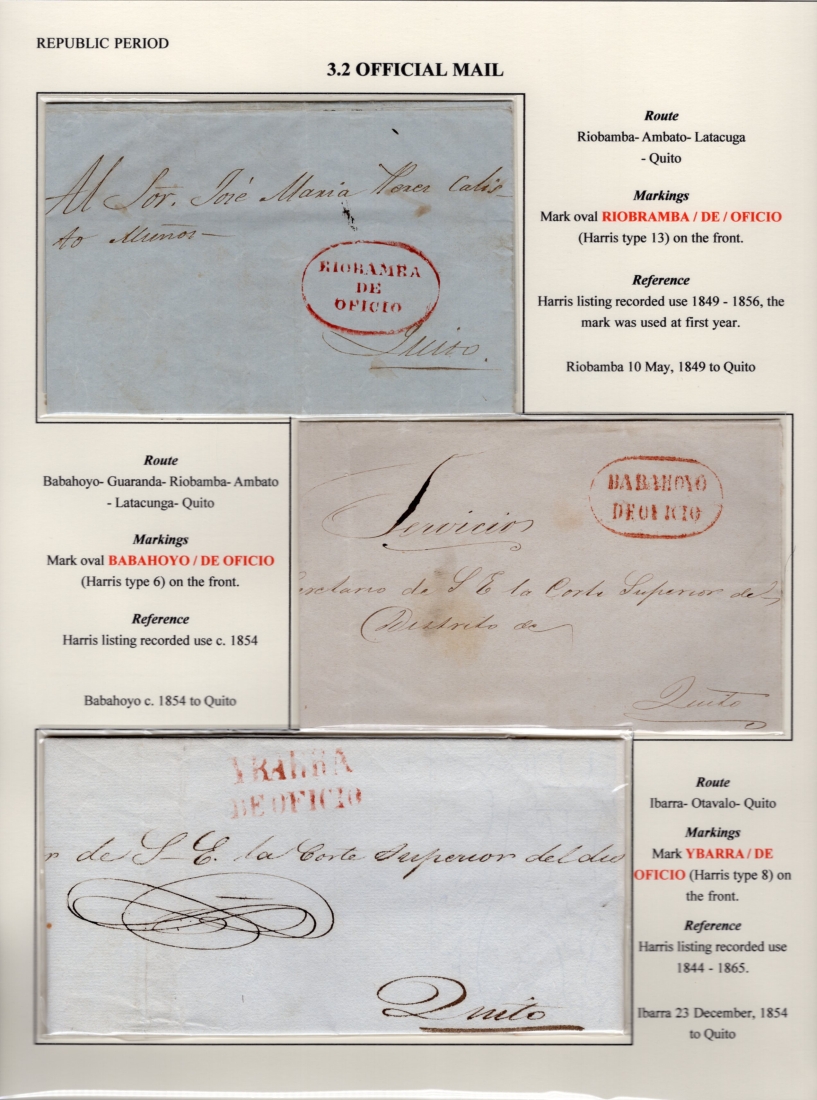 REPUBLIC PERIOD
3.2 OFFICIAL MAIL
Al Sor. José Maria Perez Calis-
to Muños-
RIOBAMBA
DE
OFICIO
Quito.
Route
Riobamba- Ambato- Latacuga
- Quito
Markings
Mark oval RIOBRAMBA / DE / OFICIO
(Harris type 13) on the front.
Reference
Harris listing recorded use 1849 - 1856, the
mark was used at first year.
Riobamba 10 May, 1849 to Quito
Route
Babahoyo- Guaranda- Riobamba- Ambato
- Latacunga- Quito
Markings
Mark oval BABAHOYO / DE OFICIO
(Harris type 6) on the front.
Reference
Harris listing recorded use c. 1854
Babahoyo c. 1854 to Quito
BABAHOYO
DE OFICIO
Servicio
cretario de S E la Corte Superior del
Distrito de
Quito
YBARRA
DE OFICIO
r de S E. la Corte Superior del dis
Quito
Route
Ibarra- Otavalo- Quito
Markings
Mark YBARRA / DE
OFICIO (Harris type 8) on
the front.
Reference
Harris listing recorded use
1844 - 1865.
Ibarra 23 December, 1854
to Quito